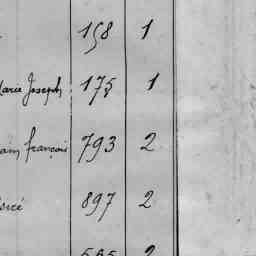 158 1
Marie Joseph 175 1
françois 793 2
897 2
2